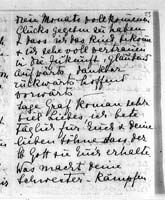 dein Monate vollkommenen
Glücks gegeben zu haben
& dass ich das Kind bekomme
& ich sehe voll vertrauen
in die Zukunft, Glaubend
aufwärts, dankbar
rückwärts hoffend
vorwärts
Sage Graf Roman sehr
viel Liebes ich bete
täglich für Euch & deine
lieben Söhne dass der
lb Gott sie Euch erhalte
Was macht deine
Schwester